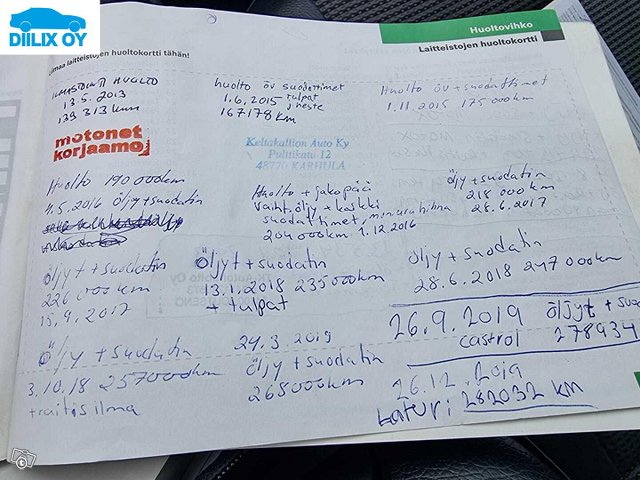 DIILIX OY
Huoltovihko
Laitteistojen huoltokortti
Liimaa laitteistojen huoltokortti tähän!
ILMASTOINTI HUOLTO
13.5.2013
139 313 km
motonet
korjaamo
huolto öv suodattimet
1.6.2015 tulpat
j.neste
167178 km
Huolto öv + suodattimet
1.11.2015 175 000km
Keltakallion Auto Ky
Pulttikatu 12
48770 KARHULA
Huolto 190 000km
4.5.2016 öljy + suodatin
Huolto + jakopää
vaiht, öljy + kaikki
suodattimet, moniurahihna
204 000km 1.12.2016
öljy + suodatin
218 000 km
28.6.2017
öljyt + suodatin
226 000 km
15.9.2017
Öljyt + suodatin
13.1.2018 235000km
+ tulpat
öljy + suodatin
28.6.2018 247 000km
öljy + suodatin
3.10.18 257000km
+ raitisilma
24.3.2019
öljy + suodatin
268000km
26.9.2019 öljyt + suo
castrol 278934
26.12.2019
Laturi: 282032 km